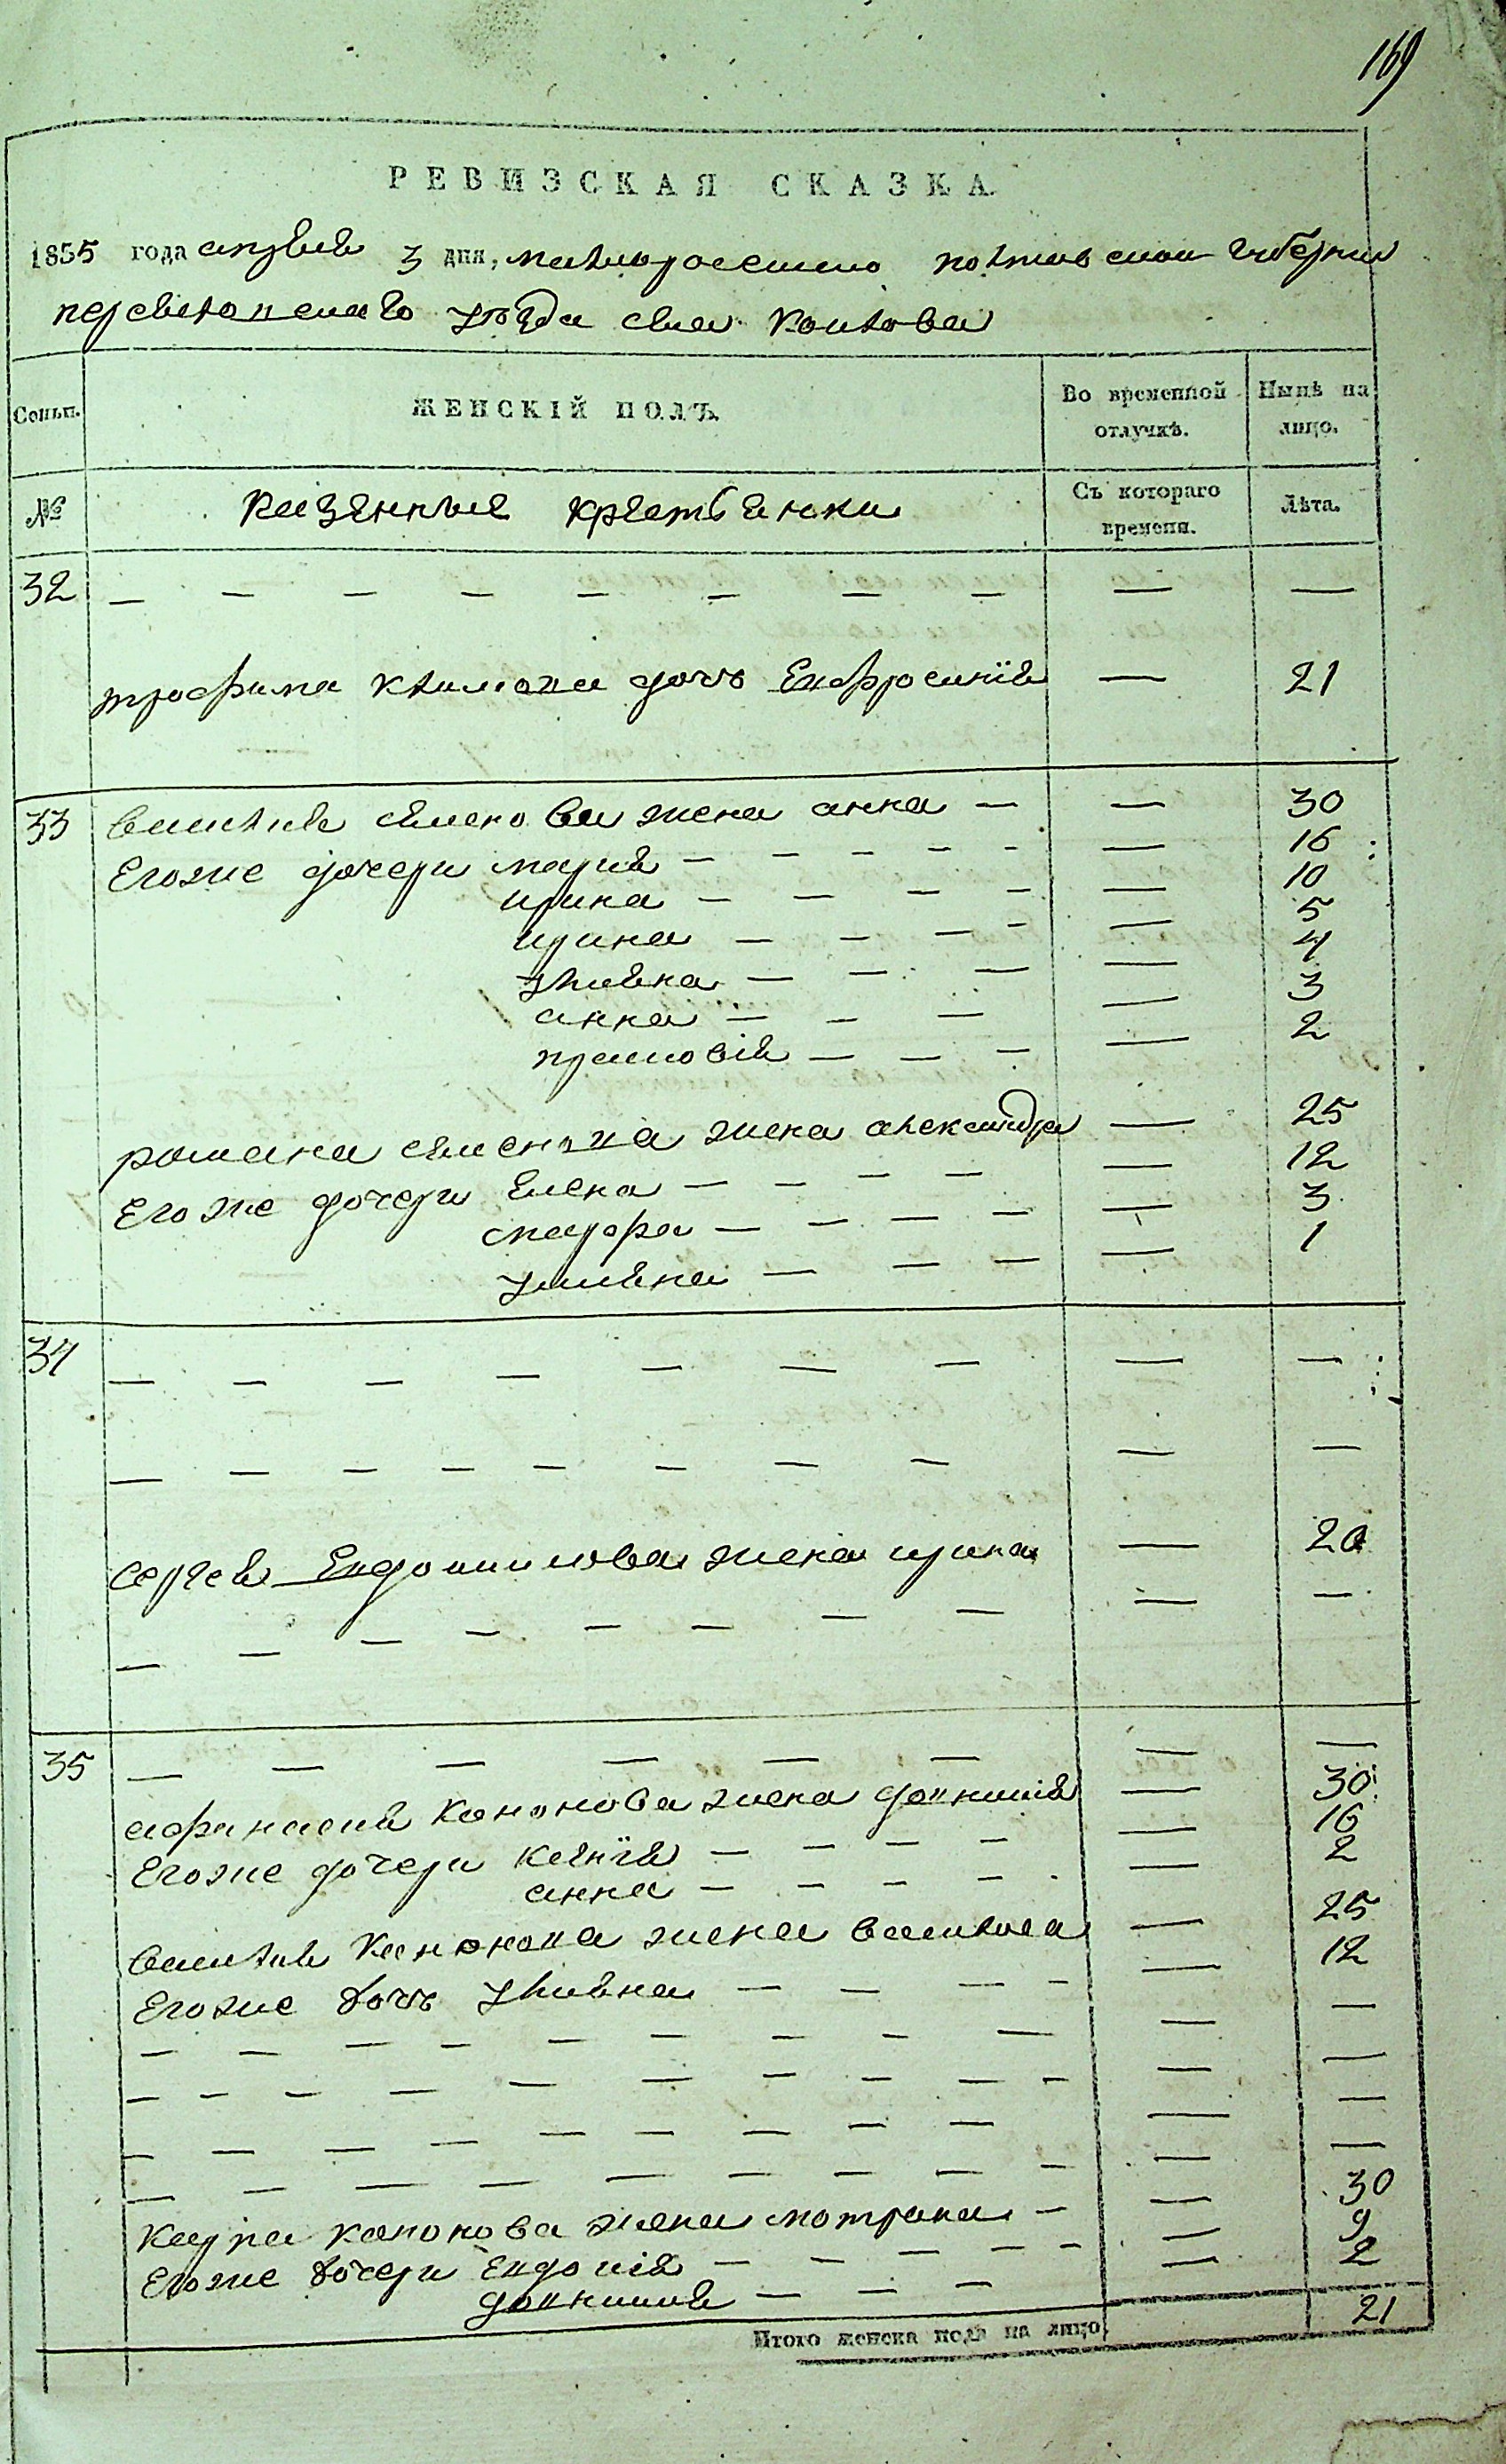 169
РЕВИЗСКАЯ СКАЗКА.
1855 года апреля 3 дня, малоросииско полтавскои губернии
переяславскаго уѣзда села Коилова
Семьи. ЖЕНСКІЙ ПОЛЪ. Во временной отлучкѣ. Нынѣ на лицо.
№ Казенные крестьянки Съ котораго времени. Лѣта.
32 — — — — — — — — — —
трофима климова дочъ Евфросинія — 21
33 василия семенова жена анна — — 30
Егоже дочери мария — — — — — — 16
ирина — — — — 10
ирина — — — — — 5
улияна — — — — 4
анна — — — — 3
прасковія — — — — 2
романа семенова жена александра — 25
Егоже дочери Елена — — — — — 12
марфа — — — — — 3
улияна — — — — 1
34 — — — — — — — — —
— — — — — — — — — —
сергея Евдокимова жена ирина — 20
— — — — — — — — — —
35 — — — — — — — —
афанасия Кононова жена домникия — 30
Егоже дочери Ксенія — — — — — 16
анна — — — — — 2
василия Кононова жена василиса — 25
Егоже дочъ улияна — — — — — 12
— — — — — — — — — —
— — — — — — — — — — —
— — — — — — — — — —
— — — — — — — — — — —
карпа кононова жена мотрона — — 30
Егоже дочери Евдокия — — — — — — 9
домникия — — — — 2
Итого женска пола на лицо. 21